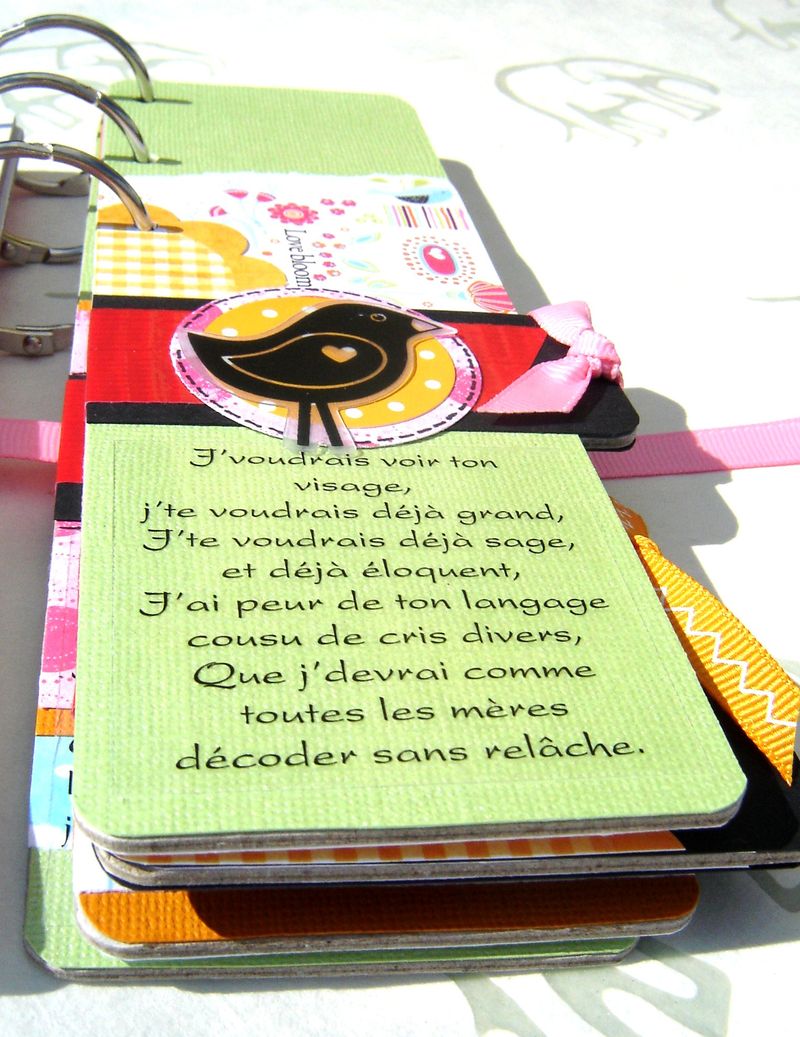 Love bloom
J'voudrais voir ton
visage,
j'te voudrais déjà grand,
J'te voudrais déjà sage,
et déjà éloquent,
J'ai peur de ton langage
cousu de cris divers,
Que j'devrai comme
toutes les mères
décoder sans relâche.